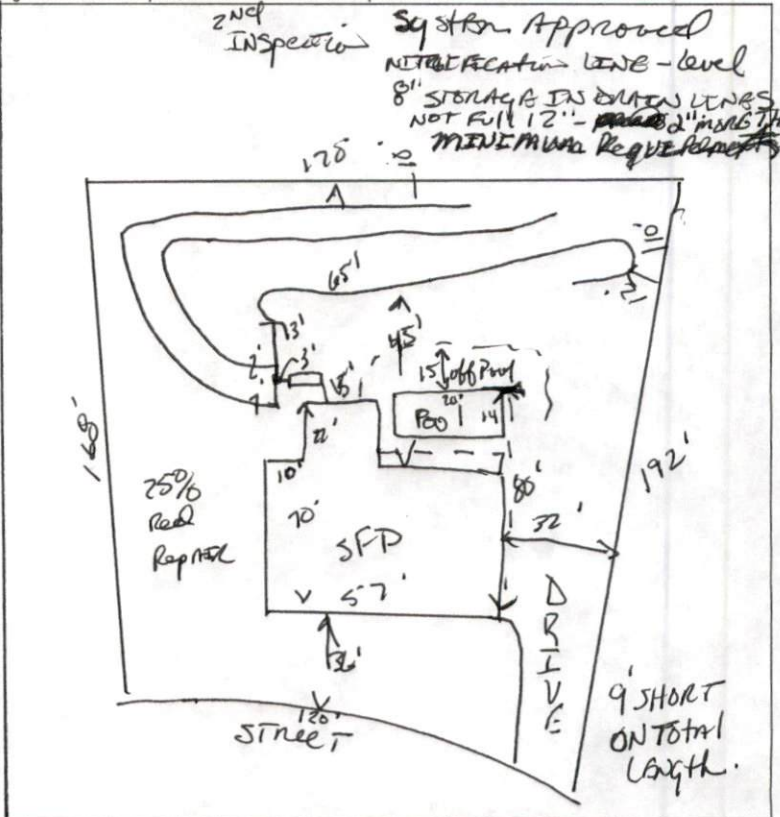 2nd
INSPECTION
System Approved
NITRIFICATION LINE - Level
8" STORAGE IN DRAIN LINES
NOT Full 12" - 2" MORE Th
MINIMUM Requirements
10'
65'
3'
3'
2'
45'
15' off Pool
20'
Pool 14
10'
70'
86'
32'
192'
168'
25%
Repair
SFD
57'
36'
DRIVE
120'
STREET
9' SHORT
ON TOTAL
LENGTH.